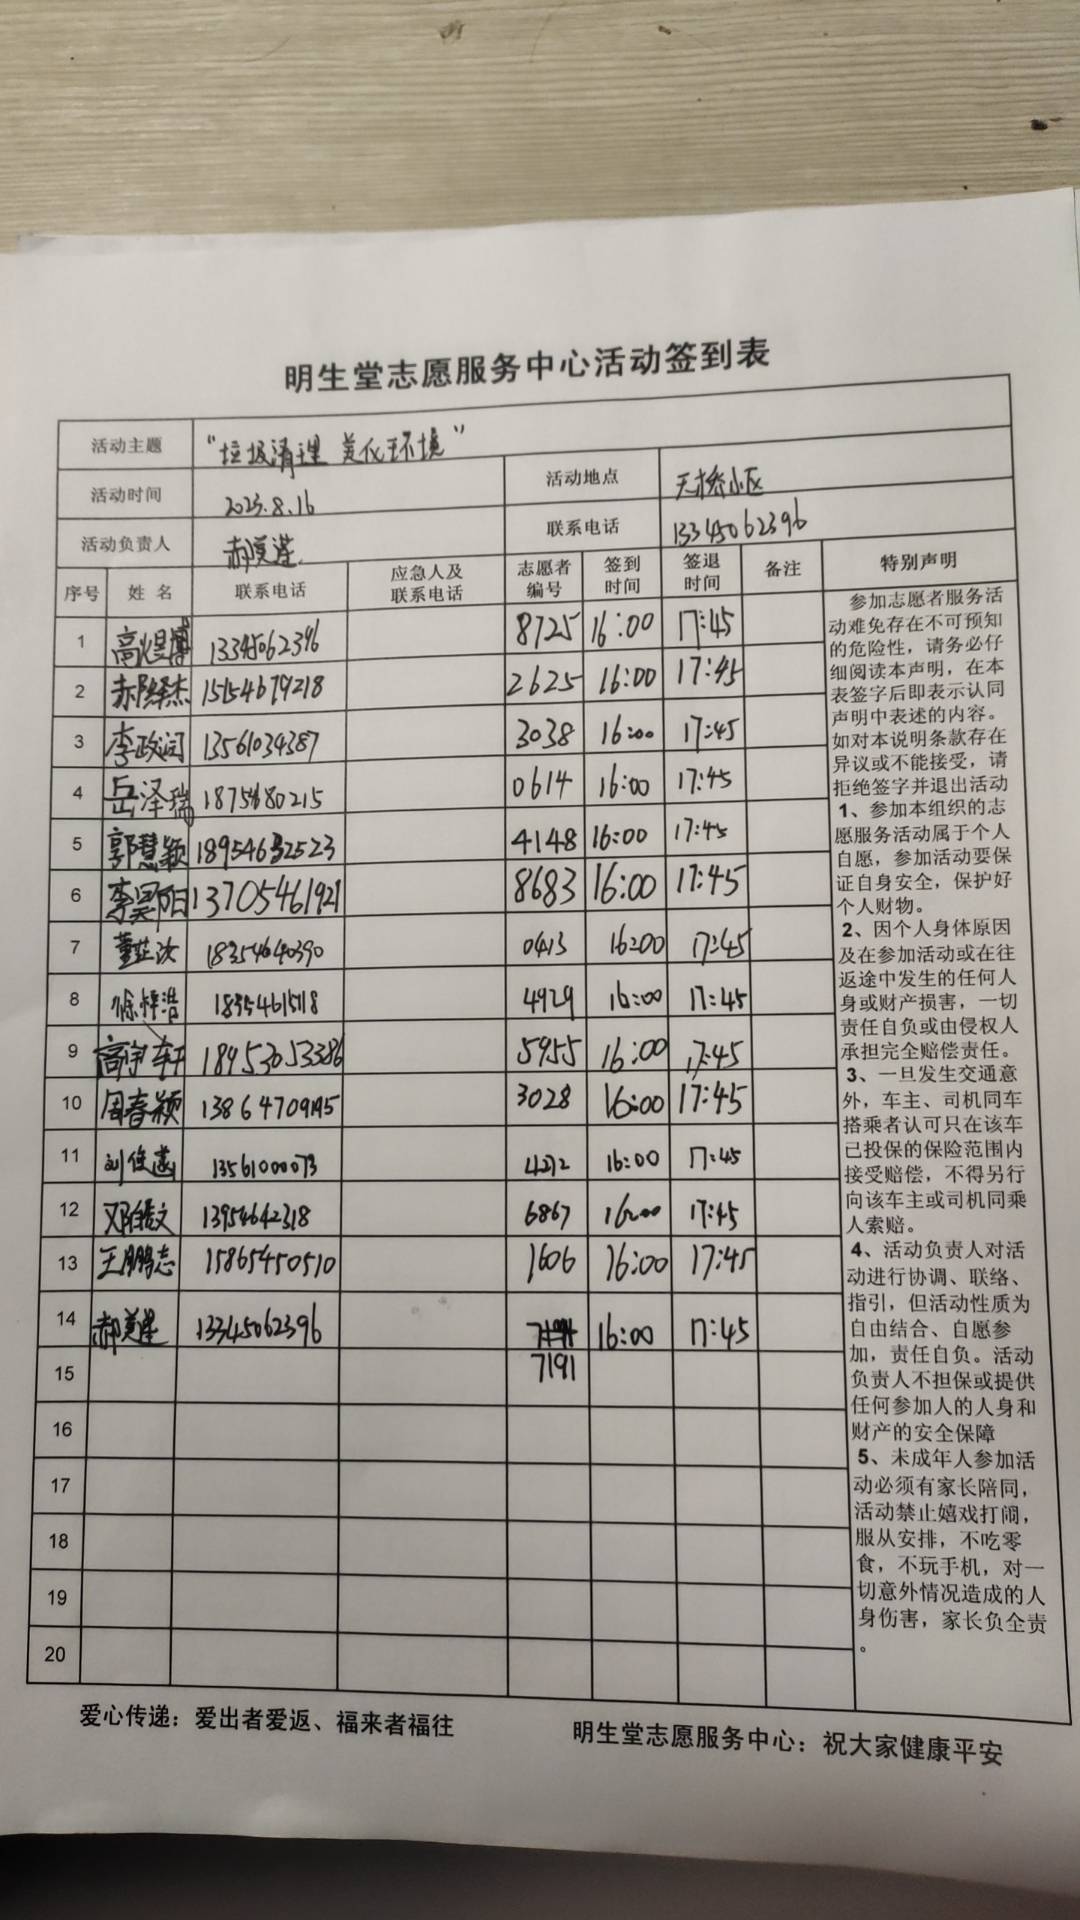 明生堂志愿服务中心活动签到表
活动主题 “垃圾清理 美化环境”
活动时间 2023.8.16 活动地点 天桥小区
活动负责人 郝 联系电话 13345062396
序号 姓名 联系电话 应急人及联系电话 志愿者编号 签到时间 签退时间 备注 特别声明
1 高煜博 13345062396 8725 16:00 17:45
2 15154679218 2625 16:00 17:45
3 李政润 13561034387 3038 16:00 17:45
4 岳泽瑞 18754680215 0614 16:00 17:45
5 郭慧颖 18954632523 4148 16:00 17:45
6 李昊阳 13705461921 8683 16:00 17:45
7 董芷汝 18354640390 0413 16:00 17:45
8 徐梓浩 18354615118 4929 16:00 17:45
9 高宇轩 18953053386 5955 16:00 17:45
10 周春颖 13864709145 3028 16:00 17:45
11 刘 13561000073 4272 16:00 17:45
12 邓 13954642318 6867 16:00 17:45
13 王鹏志 15865450510 1606 16:00 17:45
14 郝 13345062396 16:00 17:45
15 7191
16
17
18
19
20
参加志愿者服务活
动难免存在不可预知
的危险性，请务必仔
细阅读本声明，在本
表签字后即表示认同
声明中表述的内容。
如对本说明条款存在
异议或不能接受，请
拒绝签字并退出活动
1、参加本组织的志
愿服务活动属于个人
自愿，参加活动要保
证自身安全，保护好
个人财物。
2、因个人身体原因
及在参加活动或在往
返途中发生的任何人
身或财产损害，一切
责任自负或由侵权人
承担完全赔偿责任。
3、一旦发生交通意
外，车主、司机同车
搭乘者认可只在该车
已投保的保险范围内
接受赔偿，不得另行
向该车主或司机同乘
人索赔。
4、活动负责人对活
动进行协调、联络、
指引，但活动性质为
自由结合、自愿参
加，责任自负。活动
负责人不担保或提供
任何参加人的人身和
财产的安全保障
5、未成年人参加活
动必须有家长陪同，
活动禁止嬉戏打闹，
服从安排，不吃零
食，不玩手机，对一
切意外情况造成的人
身伤害，家长负全责
。
爱心传递：爱出者爱返、福来者福往 明生堂志愿服务中心：祝大家健康平安